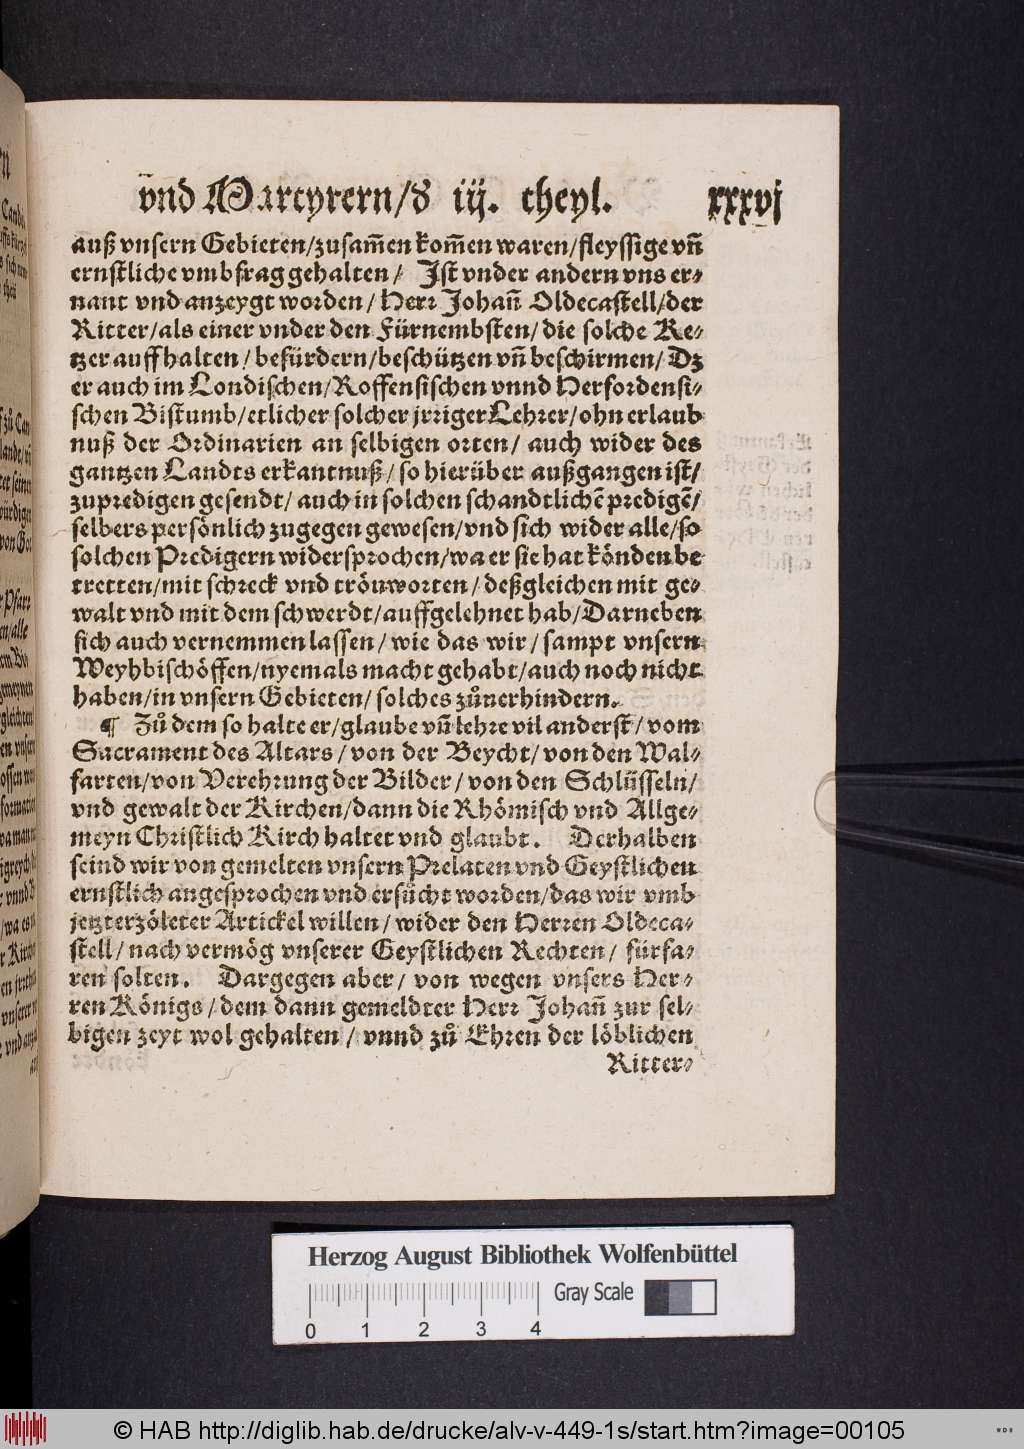 vnd Martyrern/ꝺ iij. theyl. xxxvj
auß vnsern Gebieten/zusam̄en kom̄en waren/fleyssige vn̄
ernstliche vmbfrag gehalten/ Ist vnder andern vns er⸗
nant vnd anzeygt worden/ Herr Johan̄ Oldecastell/der
Ritter/als einer vnder den Fürnembsten/die solche Ke⸗
tzer auffhalten/befürdern/beschützen vn̄ beschirmen/ Dz
er auch im Londischen/Roffensischen vnnd Herfordensi⸗
schen Bistumb/etlicher solcher jrriger Lehrer/ohn erlaub
nuß der Ordinarien an selbigen orten/ auch wider des
gantzen Landts erkantnuß/so hierüber außgangen ist/
zupredigen gesendt/auch in solchen schandtlichē predigē/
selbers persönlich zugegen gewesen/vnd sich wider alle/so
solchen Predigern widersprochen/wa er sie hat könden be
tretten/mit schreck vnd tröuworten/deßgleichen mit ge⸗
walt vnd mit dem schwerdt/auffgelehnet hab/Darneben
sich auch vernemmen lassen/wie das wir/sampt vnsern
Weyhbischöffen/nyemals macht gehabt/auch noch nicht
haben/in vnsern Gebieten/solches zůuerhindern.
¶ Zů dem so halte er/glaube vn̄ lehre vil anderst/vom
Sacrament des Altars/von der Beycht/von den Wal⸗
farten/von Verehrung der Bilder/von den Schlüsseln/
vnd gewalt der Kirchen/dann die Rhömisch vnd Allge⸗
meyn Christlich Kirch haltet vnd glaubt. Derhalben
seind wir von gemelten vnsern Prelaten vnd Geystlichen
ernstlich angesprochen vnd ersůcht worden/das wir vmb
jetzterzöleter Artickel willen/wider den Herren Oldeca⸗
stell/nach vermög vnserer Geystlichen Rechten/ fürfa⸗
ren solten. Dargegen aber/von wegen vnsers Her⸗
ren Königs/dem dann gemeldter Herr Johan̄ zur sel⸗
bigen zeyt wol gehalten/vnnd zů Ehren der löblichen
Ritter⸗
Herzog August Bibliothek Wolfenbüttel
Gray Scale
0 1 2 3 4
© HAB http://diglib.hab.de/drucke/alv-v-449-1s/start.htm?image=00105